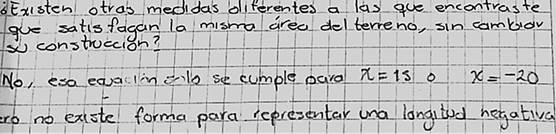 ¿Existen otras medidas diferentes a las que encontraste
que satisfagan la misma área del terreno, sin cambiar
su construcción?
No, esa ecuación solo se cumple para x=15 o x=-20
ero no existe forma para representar una longitud negativa